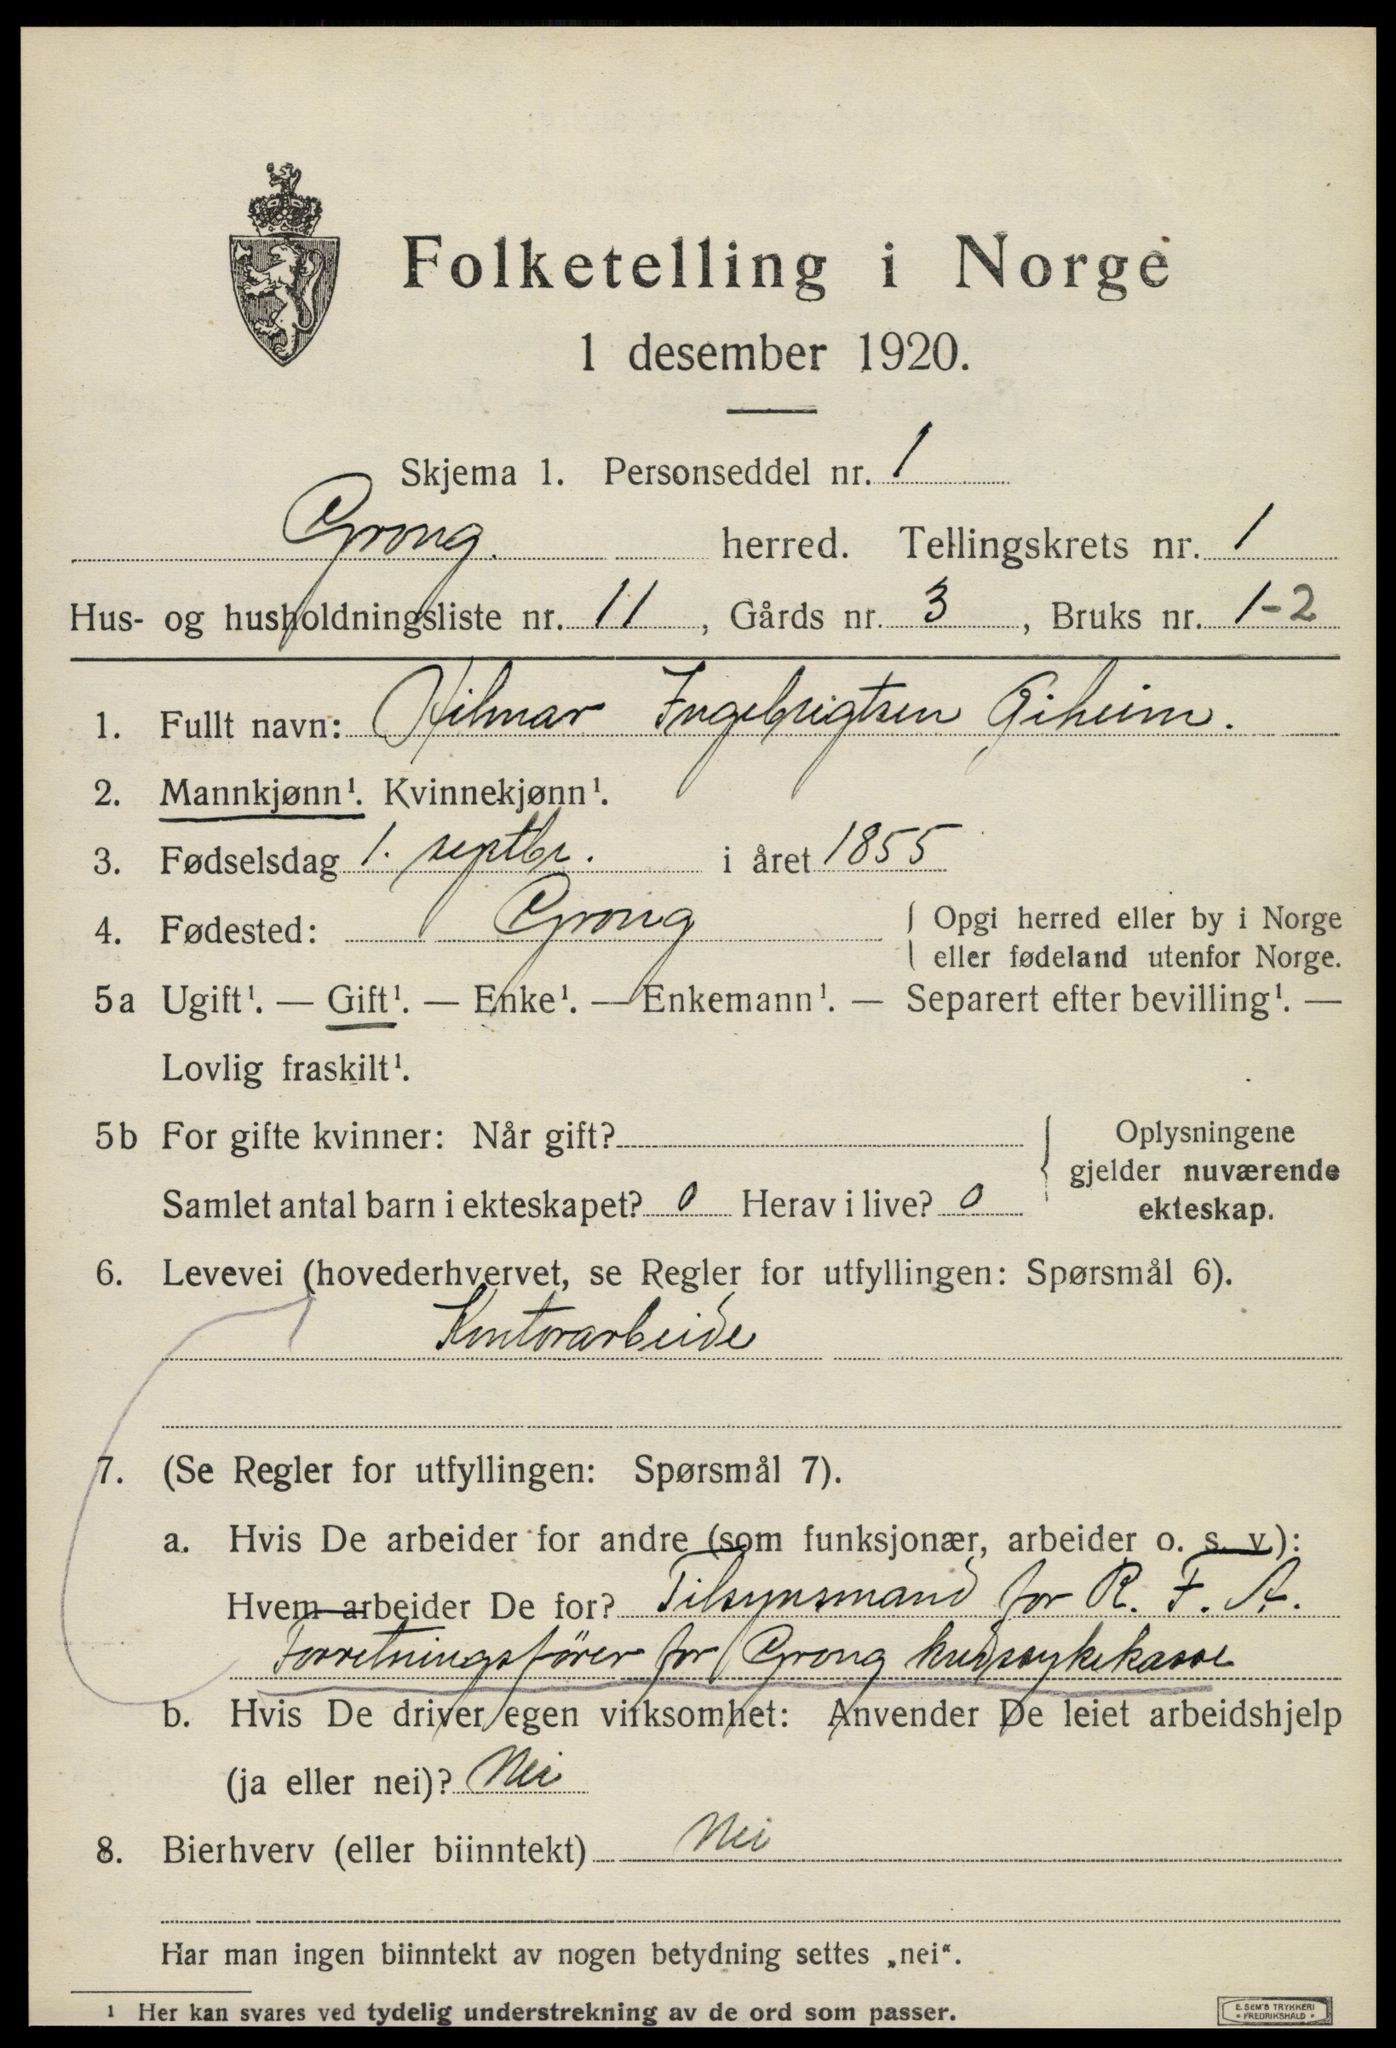 Folketelling i Norge
1 desember 1920.
Skjema 1. Personseddel nr. 1
Grong. herred. Tellingskrets nr. 1
Hus- og husholdningsliste nr. 11, Gårds nr. 3, Bruks nr. 1-2
1. Fullt navn: Hilmar Ingebrigtsen Giheim.
2. Mannkjønn¹. Kvinnekjønn¹.
3. Fødselsdag 1. septbr. i året 1855
4. Fødested: Grong { Opgi herred eller by i Norge
eller fødeland utenfor Norge.
5a Ugift¹. — Gift¹. — Enke¹. — Enkemann¹. — Separert efter bevilling¹. —
Lovlig fraskilt¹.
5b For gifte kvinner: Når gift? { Oplysningene
gjelder nuværende
Samlet antal barn i ekteskapet? 0 Herav i live? 0 ekteskap.
6. Levevei (hovederhvervet, se Regler for utfyllingen: Spørsmål 6).
Kontorarbeide
7. (Se Regler for utfyllingen: Spørsmål 7).
a. Hvis De arbeider for andre (som funksjonær, arbeider o. s. v.):
Hvem arbeider De for? Tilsynsmand for R. F. A.
Forretningsfører for Grong kredssykekasse
b. Hvis De driver egen virksomhet: Anvender De leiet arbeidshjelp
(ja eller nei)? Nei
8. Bierhverv (eller biinntekt) Nei
Har man ingen biinntekt av nogen betydning settes „nei“.
¹ Her kan svares ved tydelig understrekning av de ord som passer.
E. SEM'S TRYKKERI
• FREDRIKSHALD •